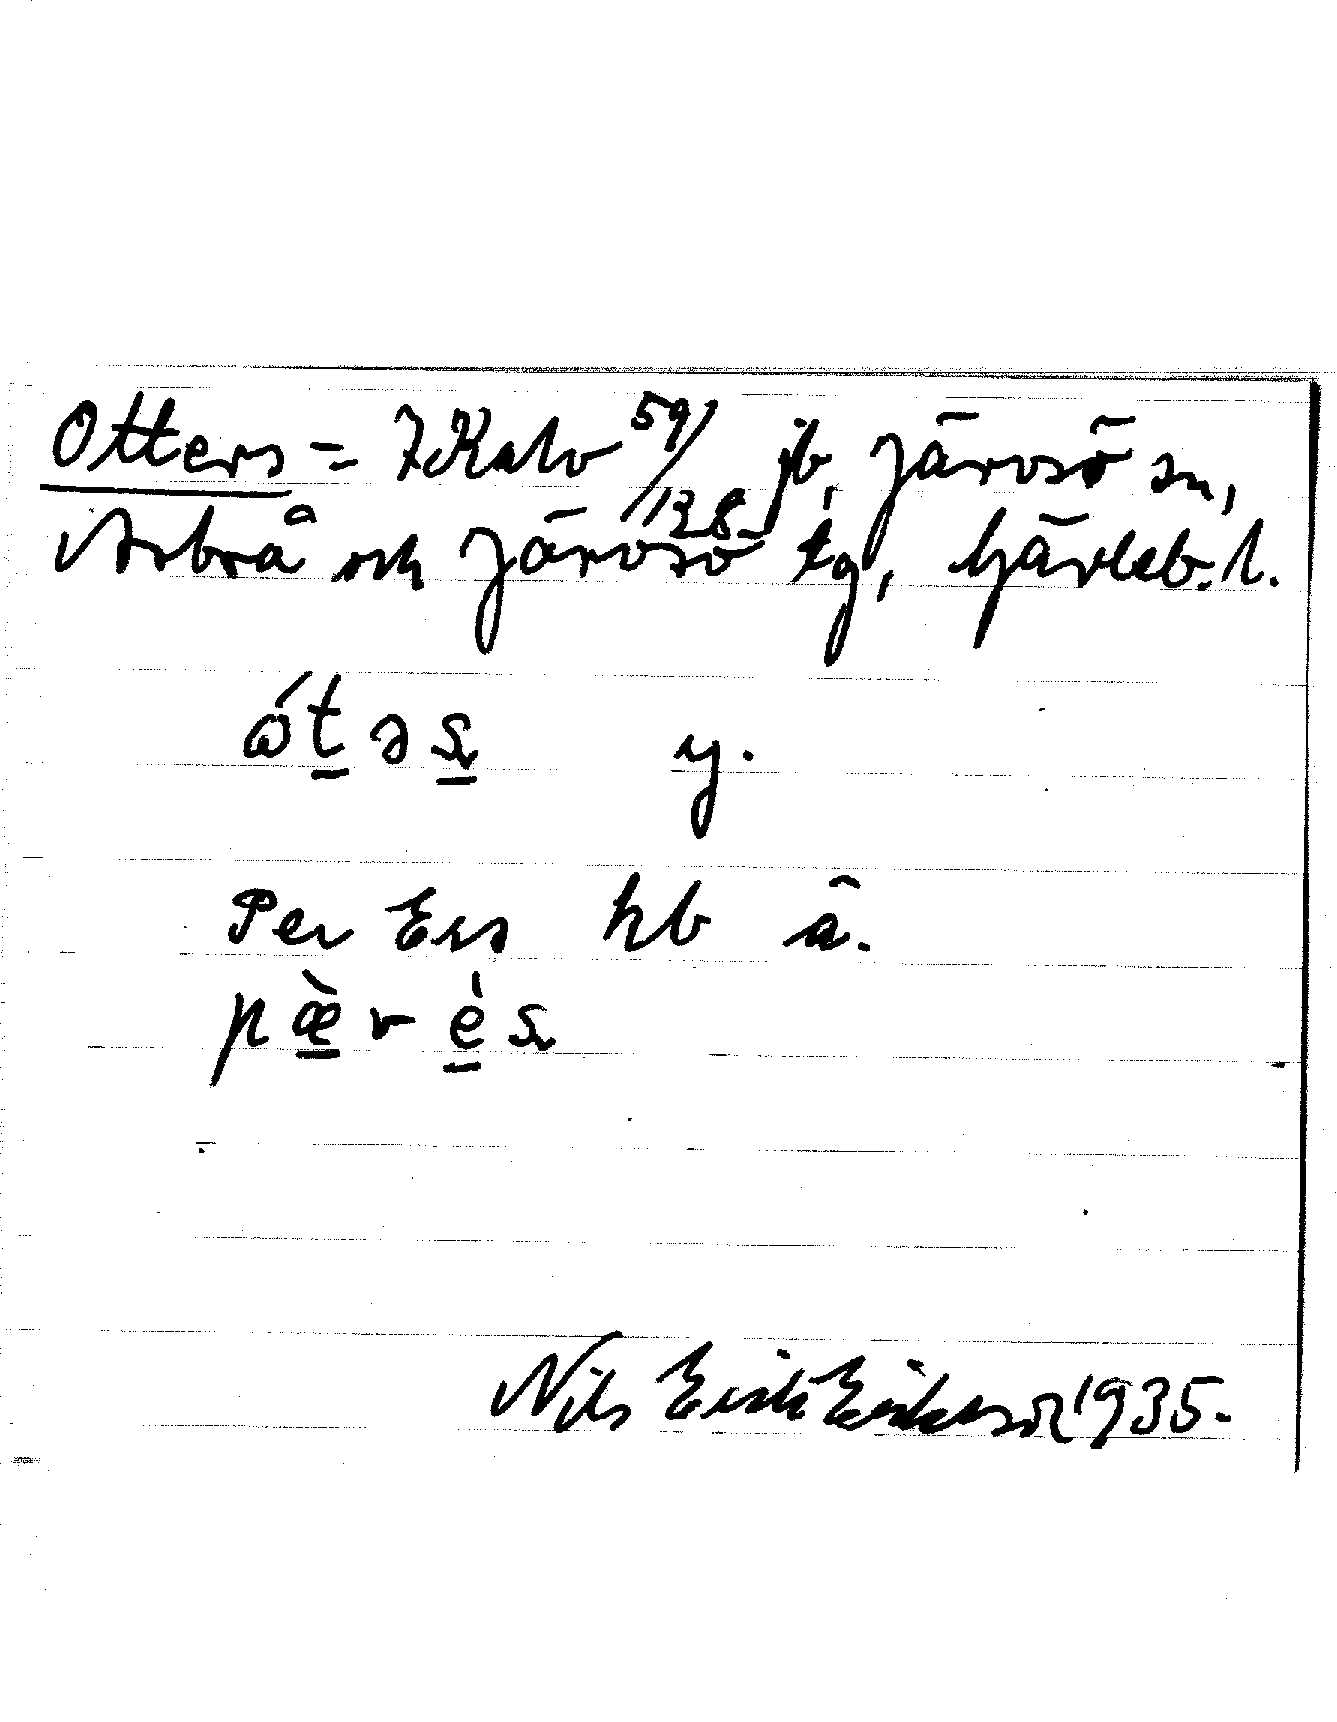 Otters = 7 Kalv 59/128 jb, Järvsö sn,
Arbrå och Järvsö tg, Gävleb. l.
ót̲əs̲ y.
Per Ers hb å.
pæ̲̀r è̲s
Nils Erik Eriksson 1935.